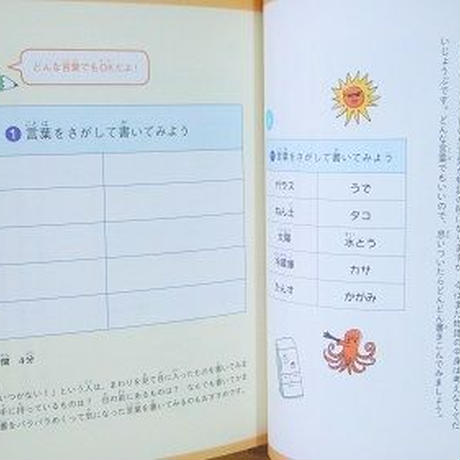 どんな言葉でもOKだよ!
1 言葉をさがして書いてみよう
間 4分
いつかない!」という人は、まわりを見て目に入ったものを書いてみま
手に持っているものは? 目の前にあるものは? なんでも書いてかま
書をパラパラめくって気になった言葉を書いてみるのもおすすめです。
1 言葉をさがして書いてみよう
ガラス うで
ねん土 タコ
太陽 水とう
冷蔵庫 カサ
たんす かがみ
いじょうぶです。どんな言葉でもいいので、思いついたらどんどん書きこんでみましょう。